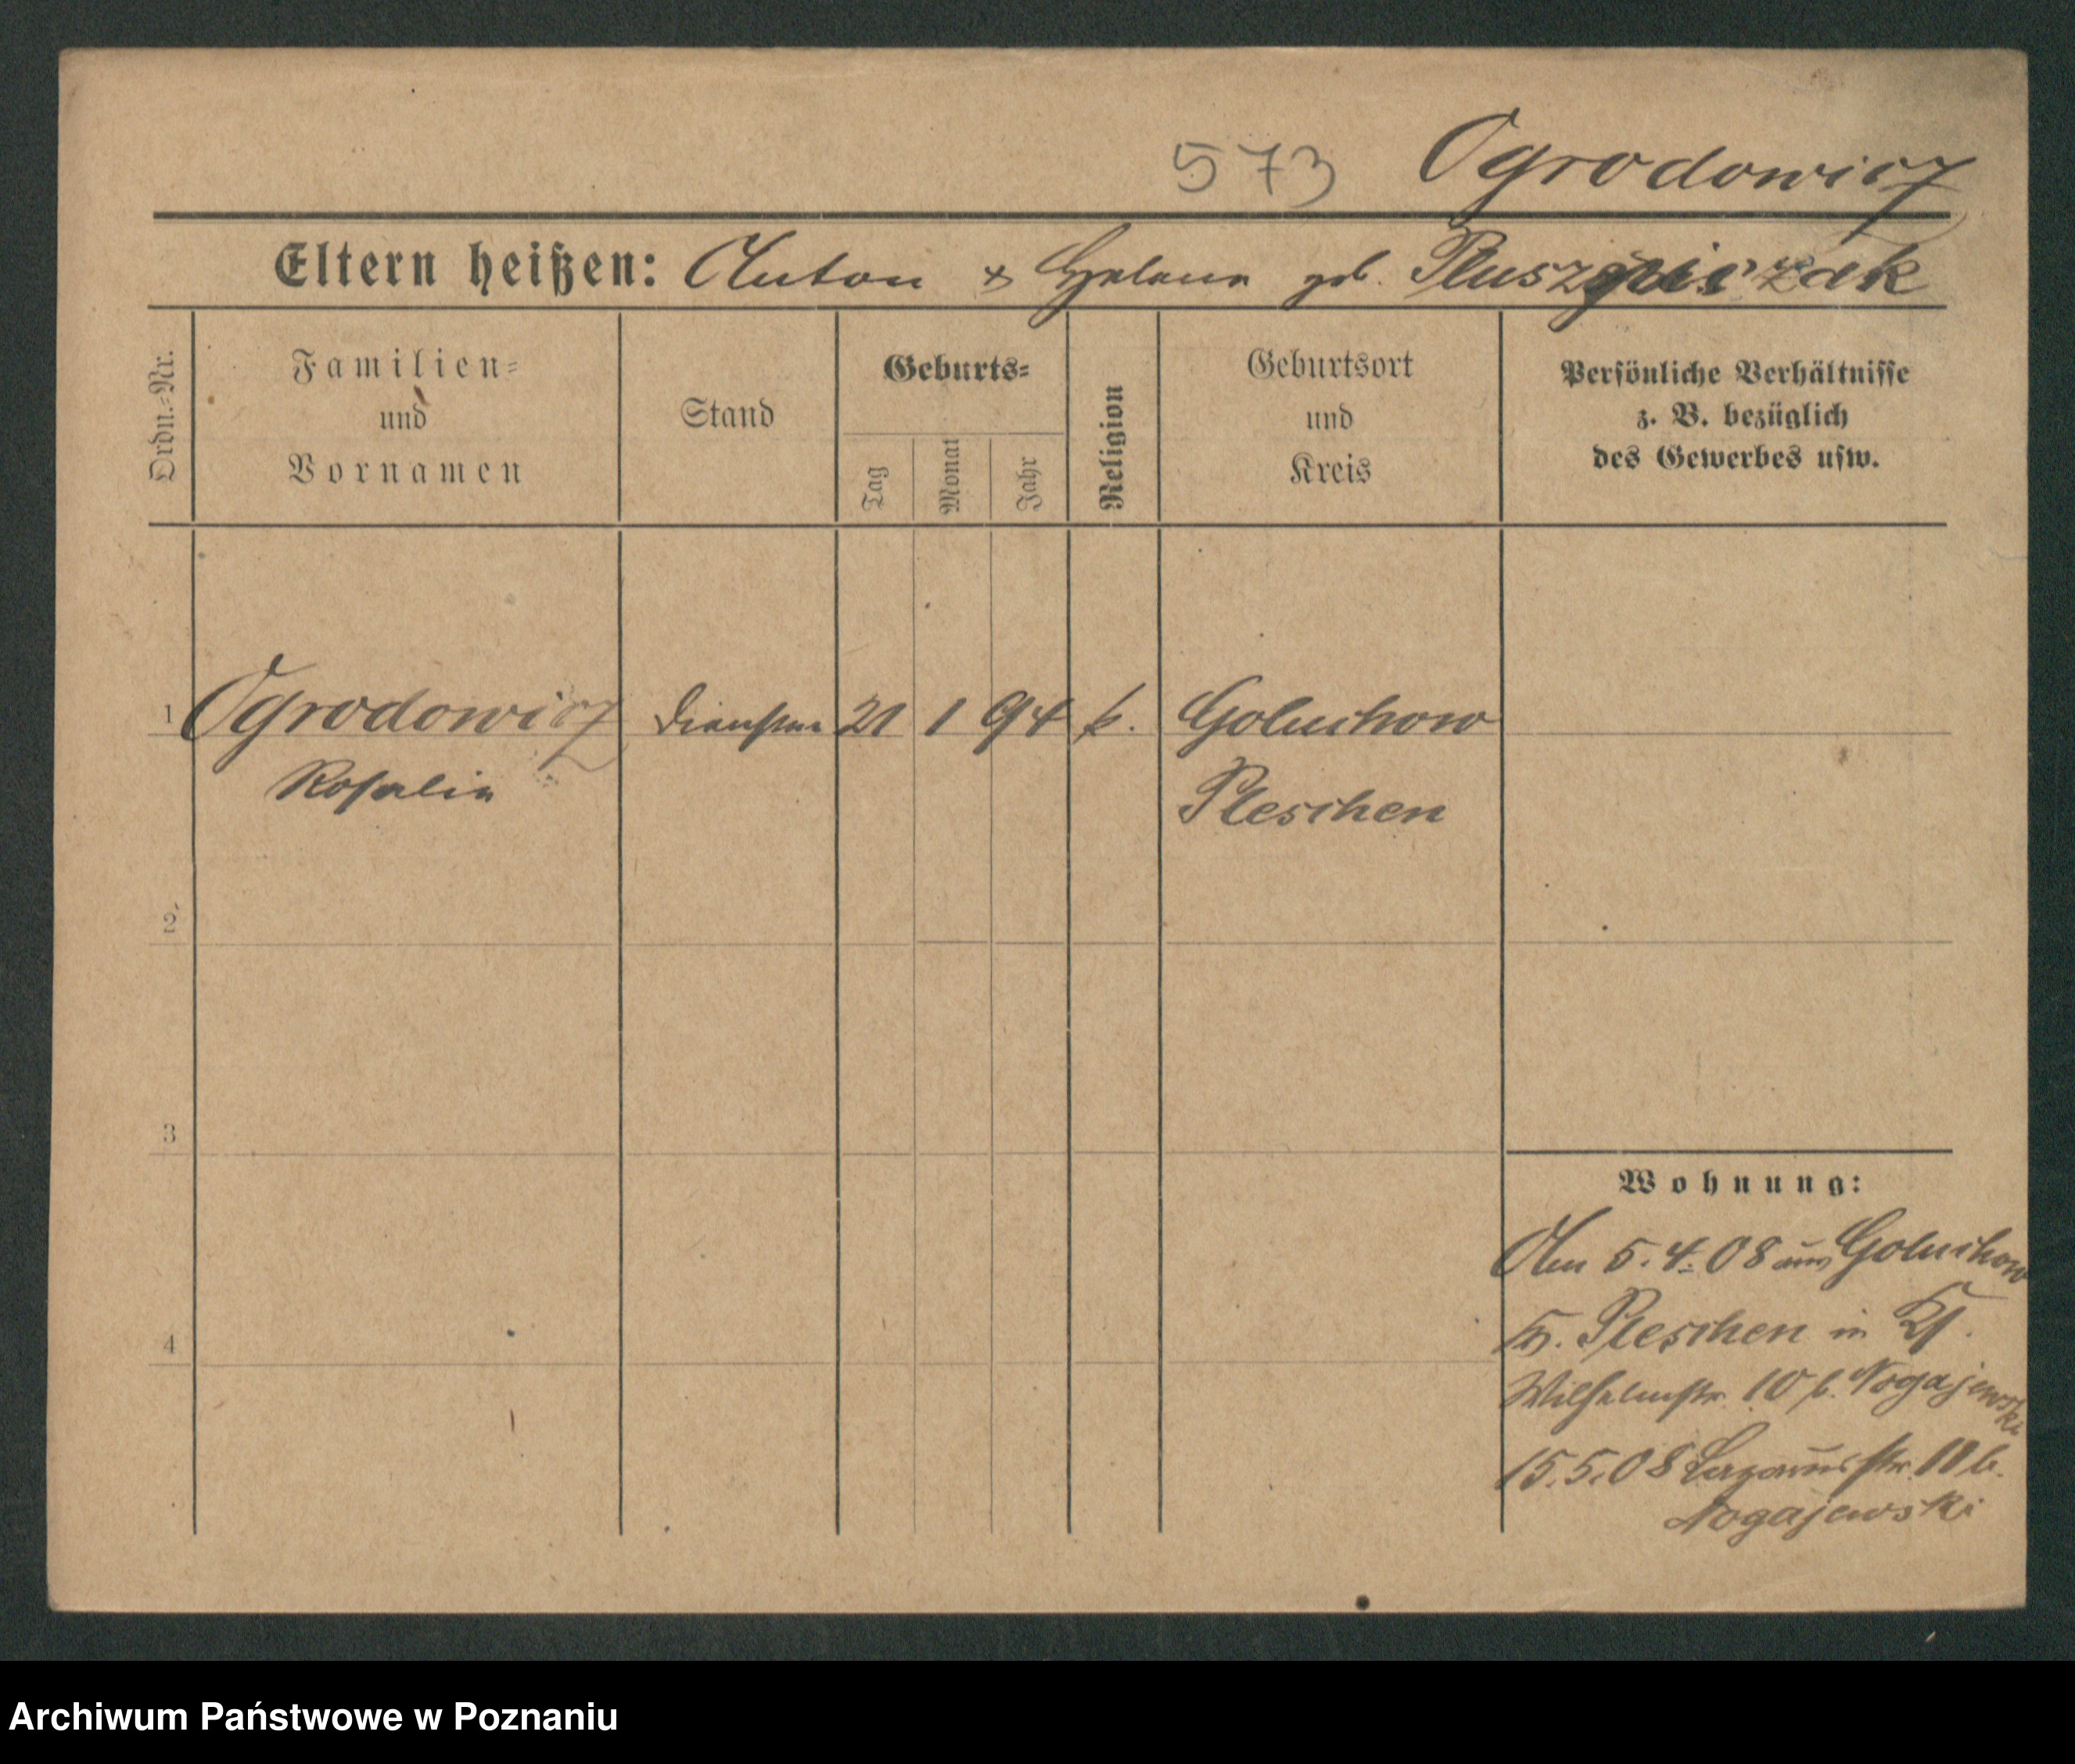 573 Ogrodowicz
Eltern heißen: Anton & Helena geb.
Ordn.-Nr.
Familien-
und
Vornamen
Stand
Geburts-
Tag
Monat
Jahr
Religion
Geburtsort
und
Kreis
Persönliche Verhältnisse
z. B. bezüglich
des Gewerbes usw.
1 Ogrodowicz 21 1 94 k. Goluchow
Rosalia Pleschen
2
3
4
Wohnung:
Am 5.4.08 aus Goluchow
Kr. Pleschen in
Wilhelmstr. 10 b. Nogajewski
15.5.08 11 b.
Nogajewski
Archiwum Państwowe w Poznaniu